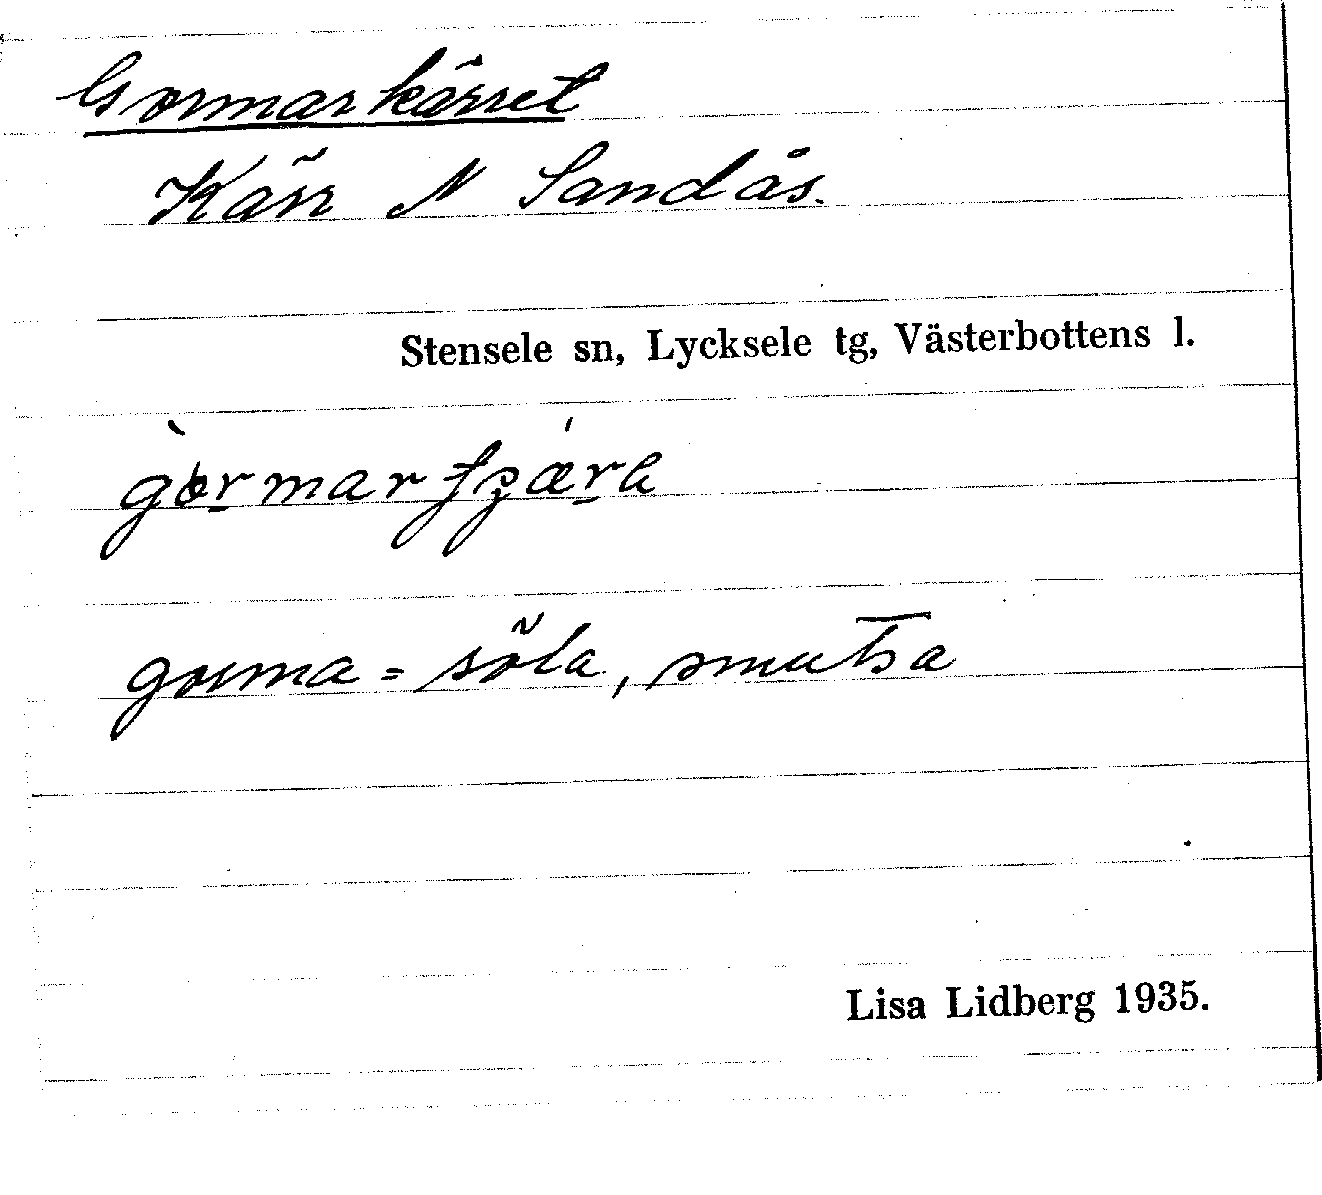 Gormarkärret
Kärr N Sandås.
Stensele sn, Lycksele tg, Västerbottens l.
gorma = söla, smutsa
Lisa Lidberg 1935.